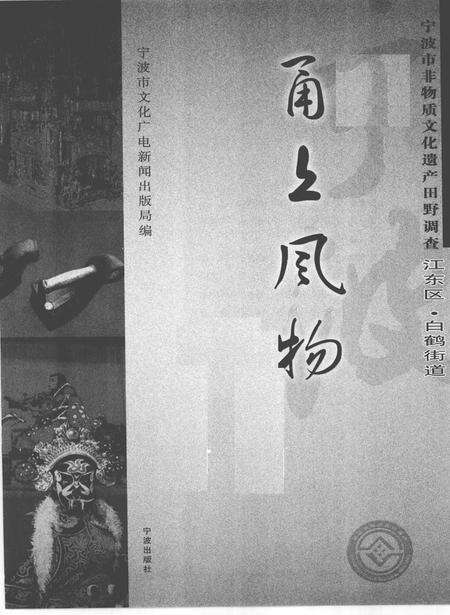 宁波市非物质文化遗产田野调查
江东区·白鹤街道
甬上风物
宁波市文化广电新闻出版局编
宁波出版社